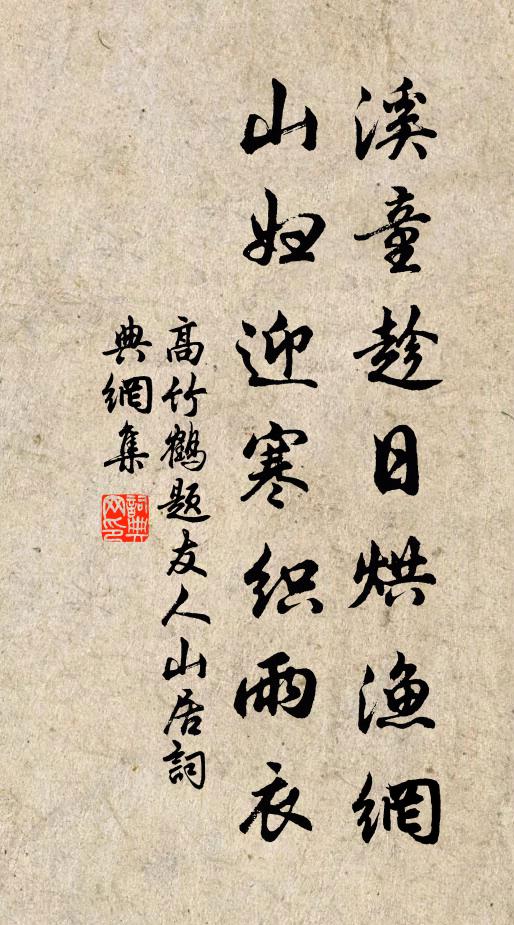 溪童趁日烘漁網
山妇迎寒织雨衣
高竹鶴题友人山居詞
典網集
詞典
网印